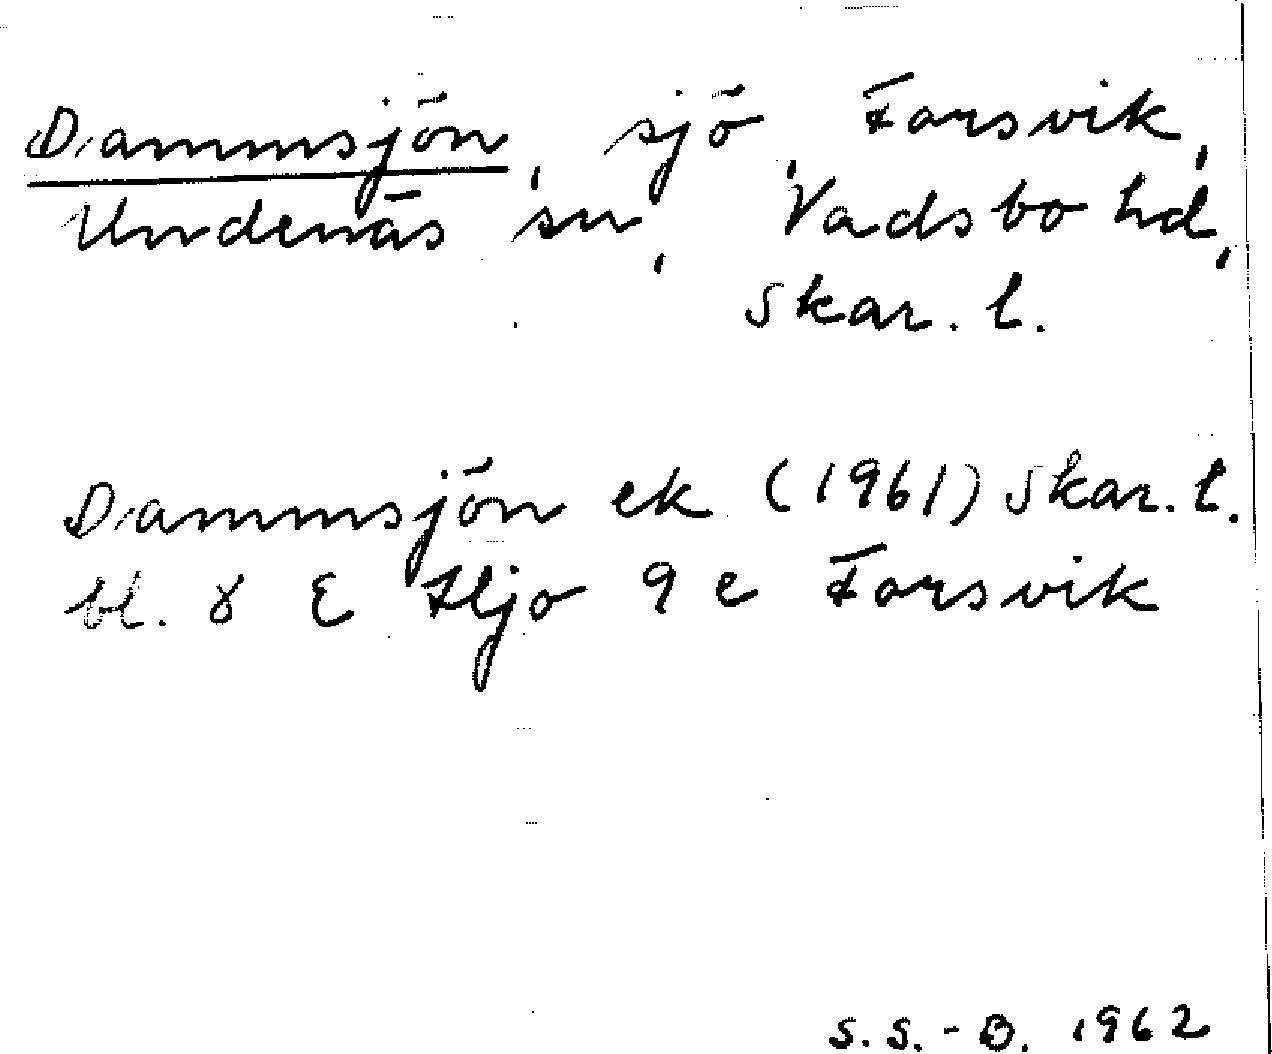 Dammsjön, sjö, Forsvik,
Undenäs sn, Vadsbo hd,
Skar. l.
Dammsjön ek (1961) Skar. l.
bl. 8 E Hjo 9 e Forsvik
S. S.-B. 1962